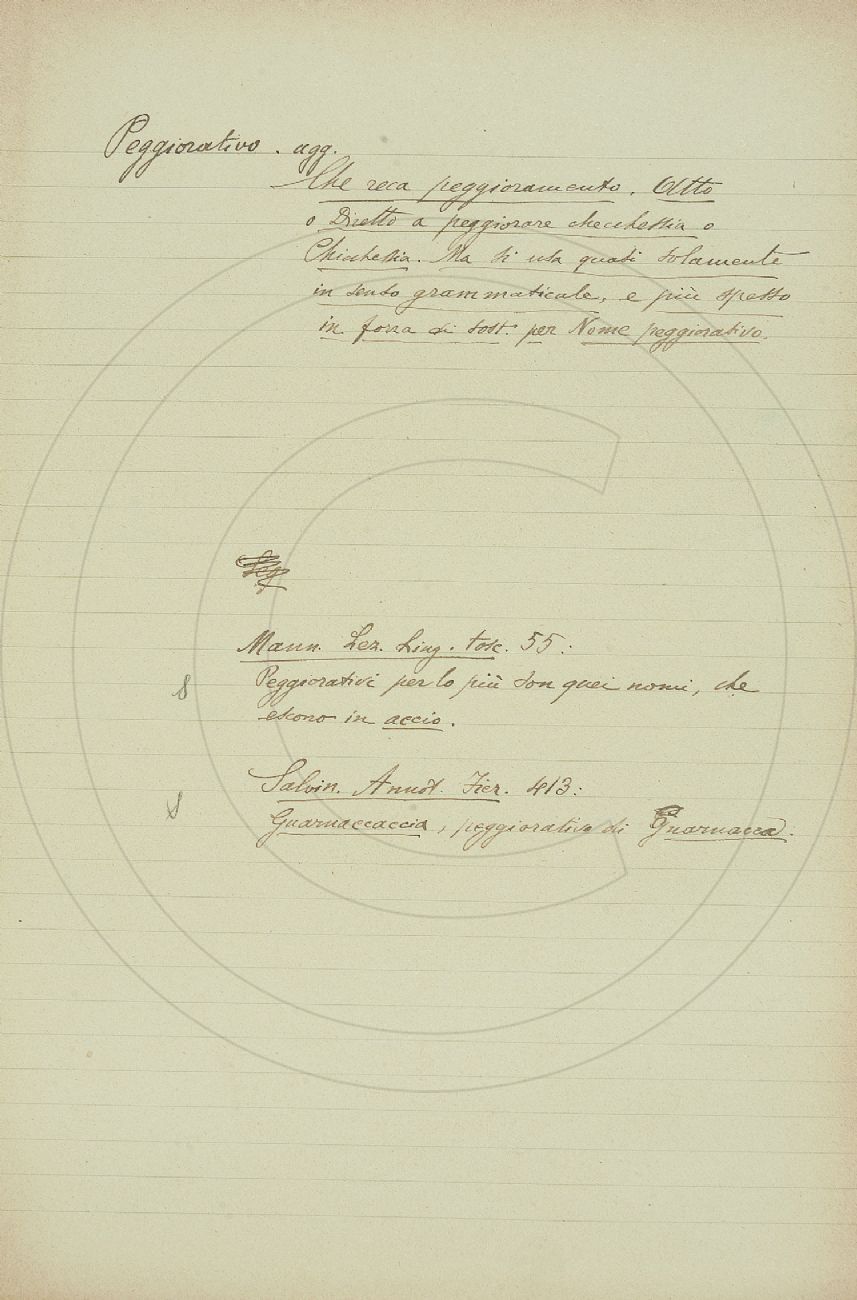 Peggiorativo. agg.
Che reca peggioramento. Atto
o Diretto a peggiorare checchessia o
Chicchessia. Ma si usa quasi solamente
in senso grammaticale, e più spesso
in forza di sost. per Nome peggiorativo.
Mann. Lez. Ling. tosc. 55:
Peggiorativi per lo più son quei nomi, che
escono in accio.
Salvin. Annot. Fier. 413:
Guarnaccaccia, peggiorativo di Guarnacca.